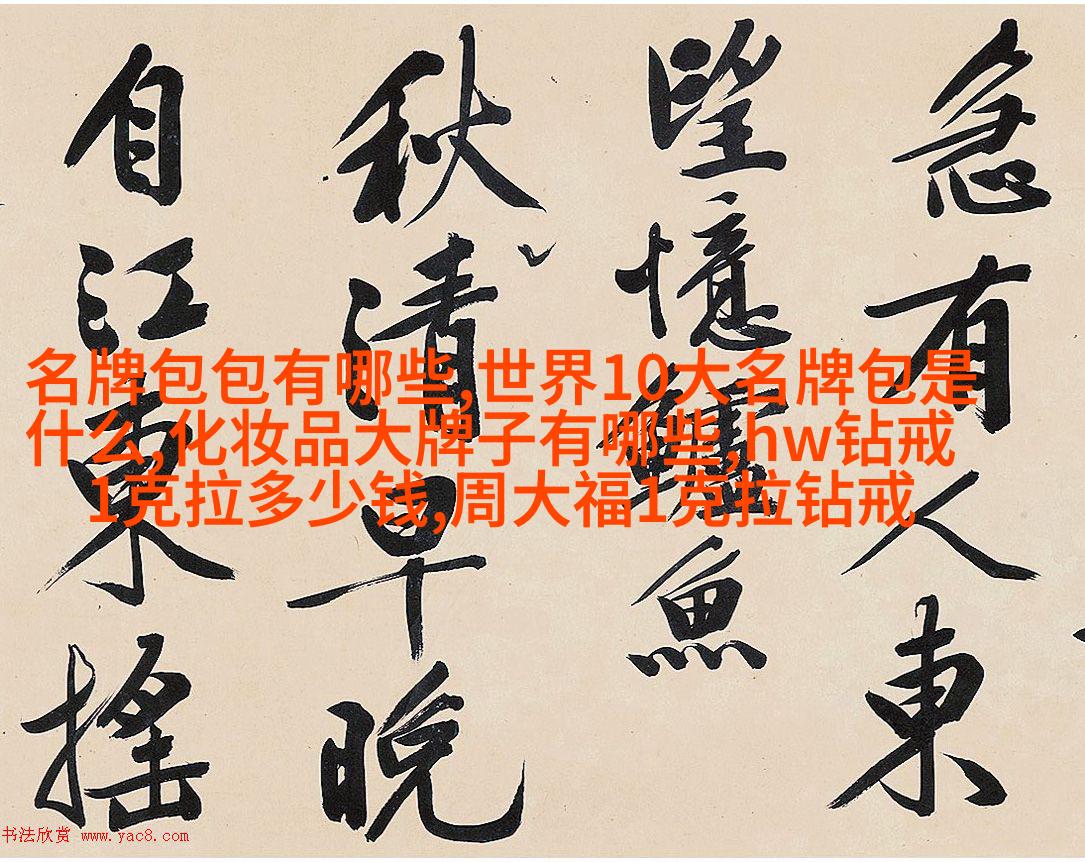 急有人東
望憶鱸魚
秋清早晚
自江東搖
名牌包包有哪些,世界10大名牌包是
什么,化妆品大牌子有哪些,hw钻戒
1克拉多少钱,周大福1克拉钻戒
书法欣赏 www.yac8.com